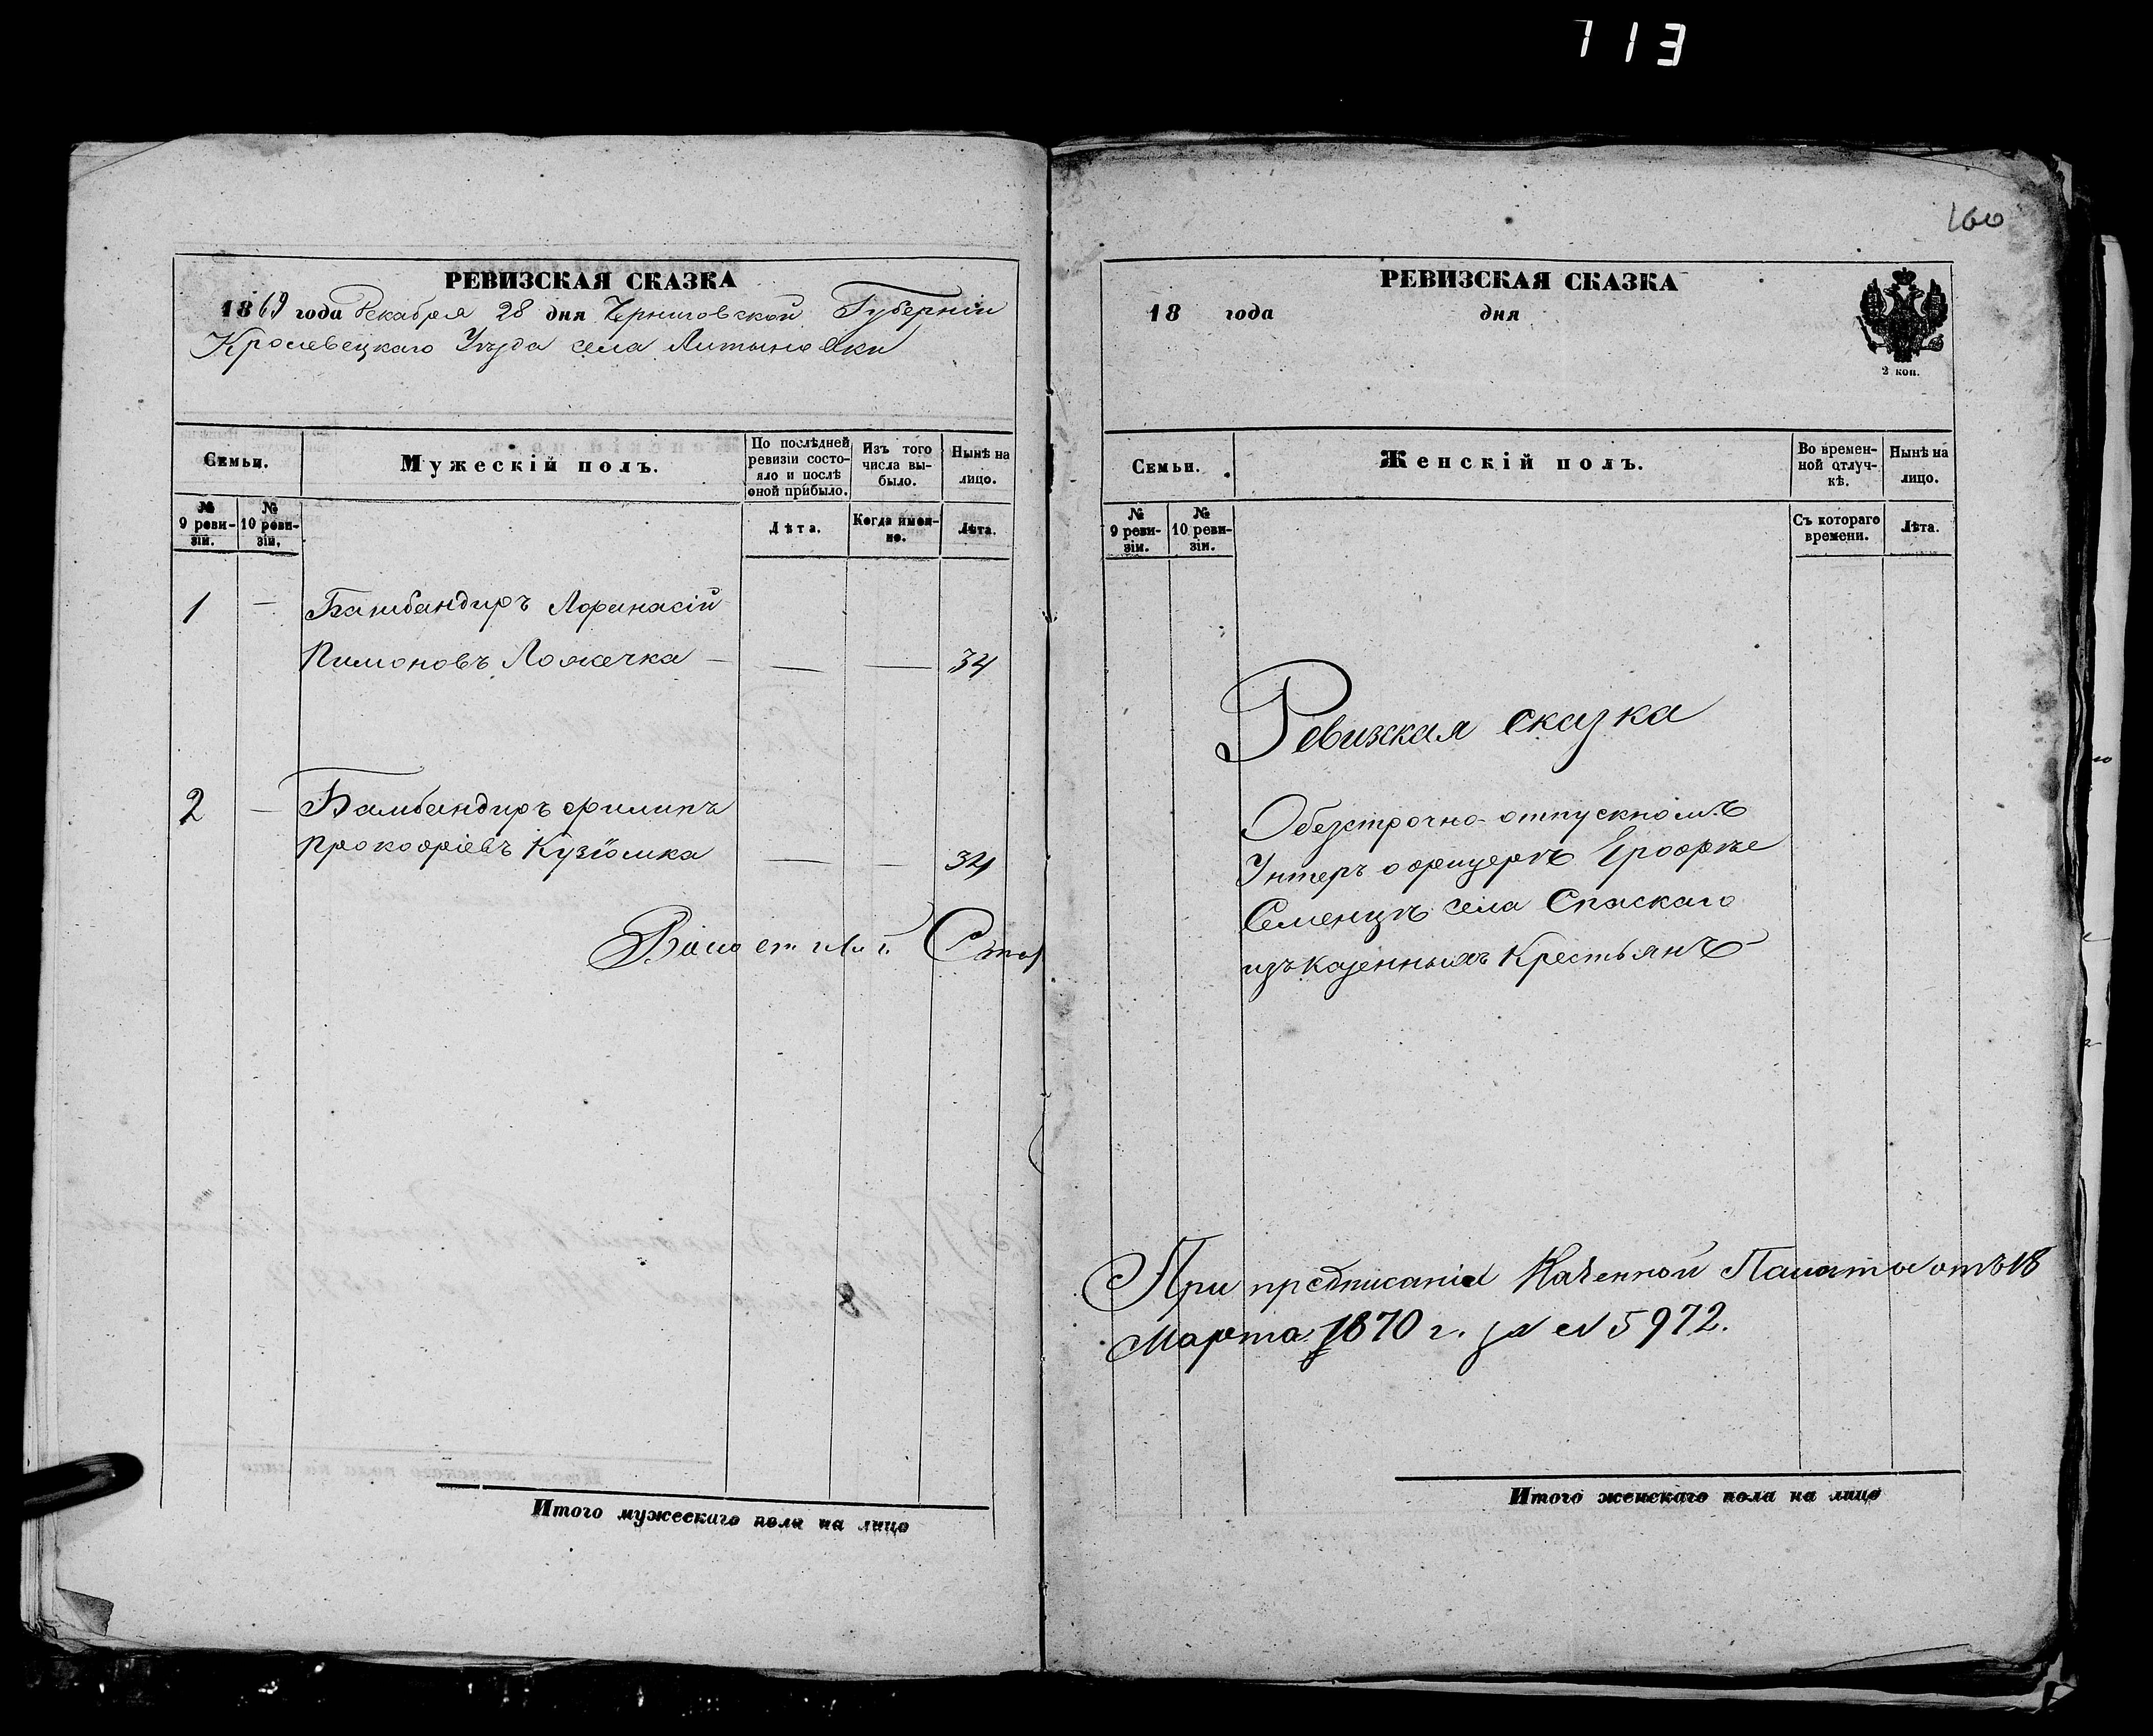 113
РЕВИЗСКАЯ СКАЗКА
1869 года Декабря 28 дня Черниговской Губерніи
Кролевецкаго Уѣзда села Литыновки
Семьи.
Мужескій полъ.
По послѣдней ревизіи состо-
яло и послѣ оной прибыло.
Изъ того числа вы-
было.
Нынѣ на лицо.
№ 9 реви-
зіи.
№ 10 реви-
зіи.
Лѣта.
Когда имен-
но.
Лѣта.
1 — Бамбандиръ Афанасій
Пимоновъ Ложечка — — — 34
2 — Бамбандиръ Филипъ
Прокофіевъ Кузіомка — — 34
Итого мужескаго пола на лицо
160
РЕВИЗСКАЯ СКАЗКА
18 года дня
2 коп.
Семьи.
Женскій полъ.
Во времен-
ной отлуч-
кѣ.
Нынѣ на лицо.
№ 9 реви-
зіи.
№ 10 реви-
зіи.
Съ котораго времени.
Лѣта.
Ревизская сказка
Обезстрочно-отпускномъ
Унтеръ офицерѣ Ерофѣе
Семенцѣ села Спаскаго
изъ казенныхъ Крестьянъ
При предписаніи Казенной Палаты отъ 18
Марта 1870 г. за № 5972.
Итого женскаго пола на лицо